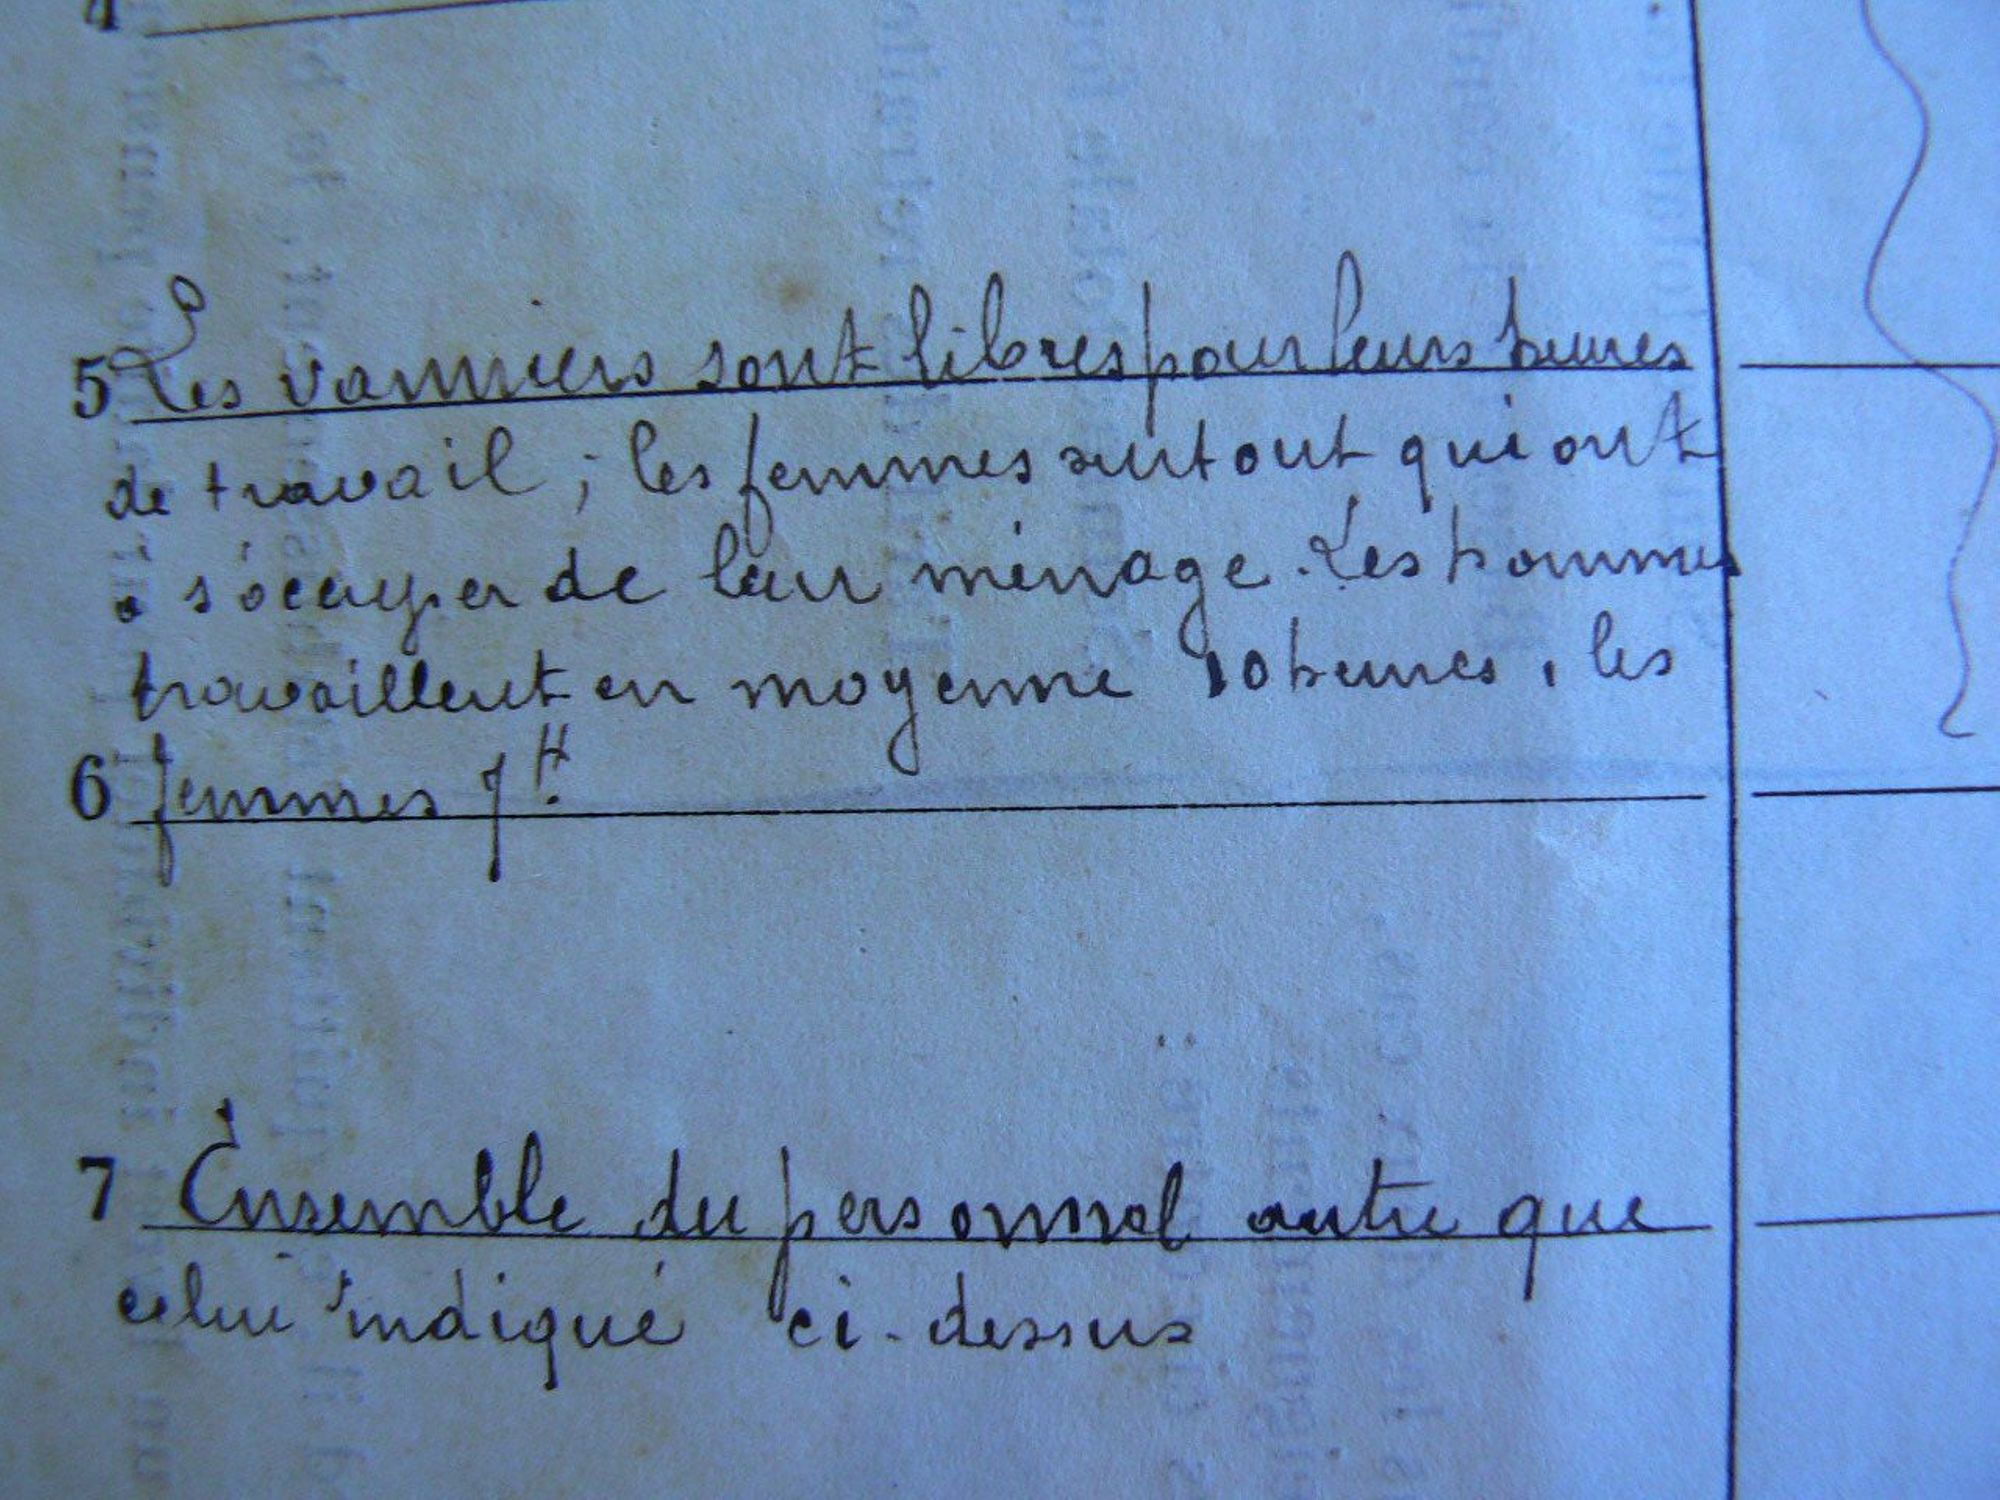 4
5 Les vanniers sont libres pour leurs heures
de travail ; les femmes surtout qui ont
à s'occuper de leur ménage. Les hommes
travaillent en moyenne 10 heures, les
6 femmes 7 H.
7 Ensemble du personnel autre que
celui indiqué ci-dessus